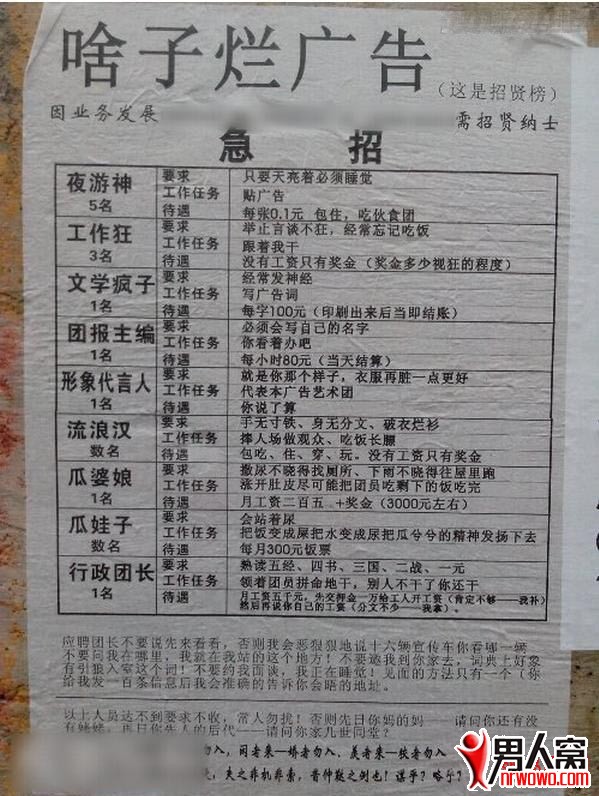 啥子烂广告
（这是招贤榜）
因业务发展
需招贤纳士
急 招
夜游神
5名
要求 只要天亮着必须睡觉
工作任务 贴广告
待遇 每张0.1元 包住，吃伙食团
工作狂
3名
要求 举止言谈不狂，经常忘记吃饭
工作任务 跟着我干
待遇 没有工资只有奖金（奖金多少视狂的程度）
文学疯子
1名
要求 经常发神经
工作任务 写广告词
待遇 每字100元（印刷出来后当即结账）
团报主编
1名
要求 必须会写自己的名字
工作任务 你看着办吧
待遇 每小时80元（当天结算）
形象代言人
1名
要求 就是你那个样子，衣服再脏一点更好
工作任务 代表本广告艺术团
待遇 你说了算
流浪汉
数名
要求 手无寸铁、身无分文、破衣烂衫
工作任务 捧人场做观众、吃饭长膘
待遇 包吃、住、穿、玩。没有工资只有奖金
瓜婆娘
1名
要求 撒尿不晓得找厕所、下雨不晓得往屋里跑
工作任务 涨开肚皮尽可能把团员吃剩下的饭吃完
待遇 月工资二百五 +奖金（3000元左右）
瓜娃子
数名
要求 会站着尿
工作任务 把饭变成屎把水变成尿把瓜兮兮的精神发扬下去
待遇 每月300元饭票
行政团长
1名
要求 熟读五经、四书、三国、二战、一元
工作任务 领着团员拼命地干，别人不干了你还干
待遇 月工资五千元，先交押金一万给工人开工资（肯定不够——我补）
然后再说你自己的工资（分文不少——我拿）。
应聘团长不要说先来看看，否则我会恶狠狠地说十六辆宣传车你看哪一辆
不要问我在哪里，我就在我站的这个地方！不要邀我到你家去，词典上好象
有引狼入室这个词！不要约我面谈，我正在睡觉！见面的方法只有一个（你
给我发一百条信息后我会准确的告诉你会晤的地址。
以上人员达不到要求不收，常人勿扰！否则先日你妈的妈——请问你还有没
有姥姥，再日你先人的后代——请问你家几世同堂？
勿入，闲者来—娇者勿入、美者来—妓者勿入
夫之非机非素，晋仲敖之剑也！谋乎？略乎？
男人窝
nrwowo.com